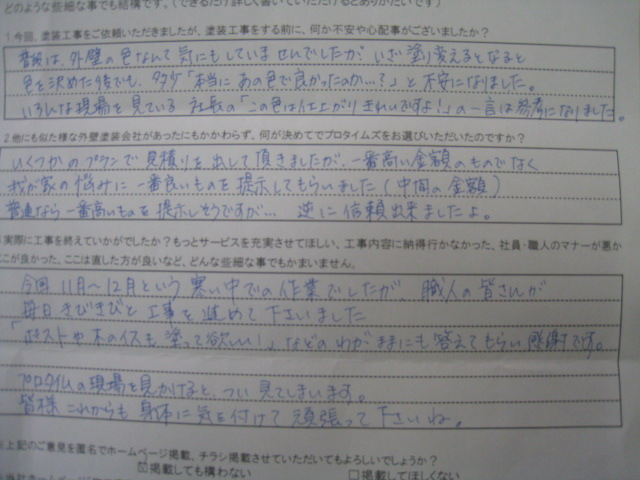 どのような些細な事でも結構です。(できるだけ詳しく書いていただけるとありがたいです)
1 今回、塗装工事をご依頼いただきましたが、塗装工事をする前に、何か不安や心配事がございましたか?
普段は、外壁の色なんて気にもしていませんでしたが、いざ塗り変えるとなると
色を決めた後でも、多少「本当にあの色で良かったのか…?」と不安になりました。
いろんな現場を見ている 社長の「この色は仕上がりきれいですよ!」の一言は参考になりました。
2 他にも似た様な外壁塗装会社があったにもかかわらず、何が決めてでプロタイムズをお選びいただいたのですか?
いくつかのプランで見積りを出して頂きましたが、一番高い金額のものでなく
我が家の悩みに一番良いものを提示してもらいました(中間の金額)
普通なら一番高いものを提示しそうですが… 逆に信頼出来ましたよ。
実際に工事を終えていかがでしたか?もっとサービスを充実させてほしい、工事内容に納得行かなかった、社員・職人のマナーが悪か
こが良かった。ここは直した方が良いなど、どんな些細な事でもかまいません。
今回 11月~12月という 寒い中での作業でしたが、職人の皆さんが
毎日きびきびと工事を進めて下さいました
「ポストや木のイスも塗って欲しい!」などのわがままにも答えてもらい感謝です。
プロタイムの現場を見かけると、つい見てしまいます。
皆様これからも身体に気を付けて頑張って下さいね。
※上記のご意見を匿名でホームページ掲載、チラシ掲載させていただいてもよろしいでしょうか?
☑掲載しても構わない □掲載してほしくない